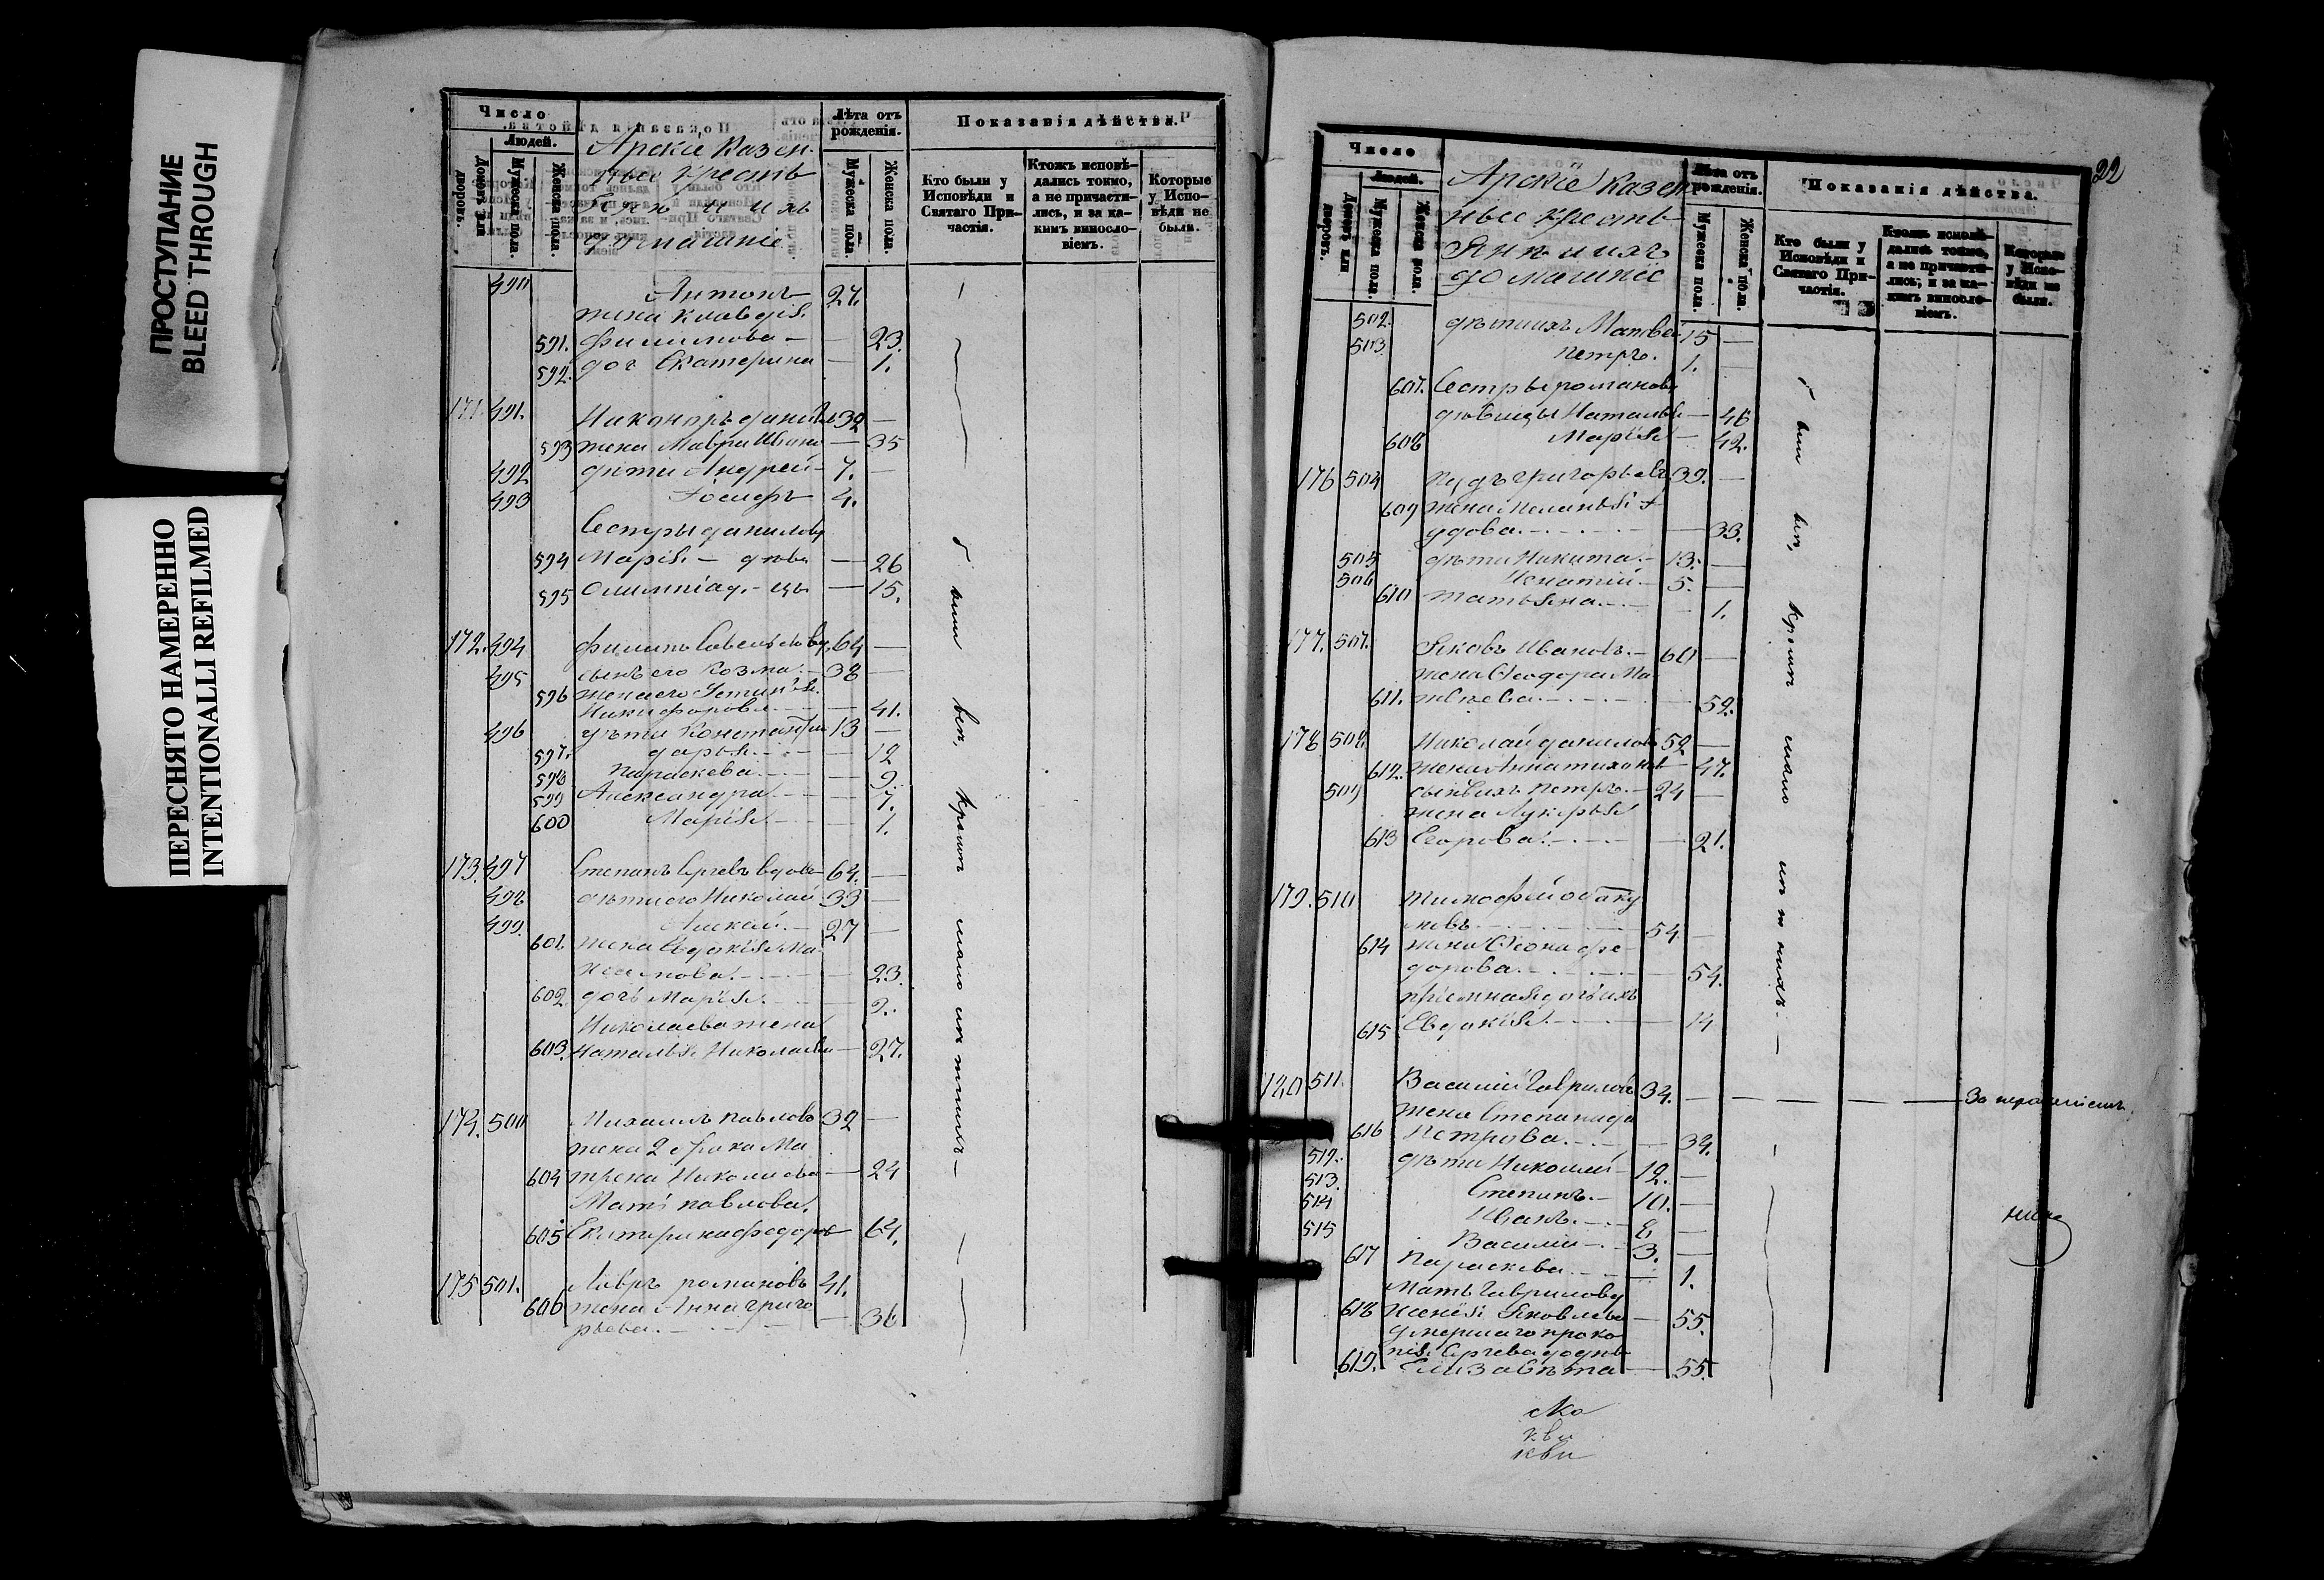 ПРОСТУПАНИЕ
BLEED THROUGH
ПЕРЕСНЯТО НАМЕРЕННО
INTENTIONALLI REFILMED
Число
Людей.
Домовъ или дворовъ.
Мужеска пола.
Женска пола.
Арскіе Казен
ные Кресть
яне и ихъ
домашніе
Лѣта отъ рожденія.
Мужеска пола.
Женска пола.
Показанія дѣйства.
Кто были у Исповѣди и Святаго При-частія.
Ктожъ исповѣ-дались токмо, а не причасти-лись, и за ка-кимъ винослo-віемъ.
Которые у Испо-вѣди не были.
490 Антонъ 27.
жена Клавдія
591. Филипова — 23.
592. доч Екатерина — 1.
171. 491. Никоноръ данилов 32 —
593 жена Мавра Ивано — 35
492 дѣти Андрей 7. —
493 Іосифъ 4.
Сестры данилову
594 Марія — дѣв — 26
595 Олимпіад. — цы — 15.
172. 494 Филипъ Савельевъ 64 —
495 сынъ его Козма — 38 —
596 жена его Устинія
Никифорова — 41.
496 дѣти Константин 13 —
597. дарья — 12
598 Параскева — 9.
599 Александра — 7.
600 Марія — 1.
173. 497 Степанъ Сергеевъ вдов 64. —
498 дѣти его Николай 33 —
499. Алексѣй 27 —
601. жена Евдокія Ма
ксимова — 23.
602 дочь Марія — 2.
Николаева жена
603. Наталья Николаева — 27.
174. 500 Михаилъ Павловъ 32 —
жена 2 брака Ма
604 трена Николаева — 24
Мать Павлова
605 Екатерина Федоров — 64.
175 501. Лавръ романовъ 41.
606 жена Анна григо
рьева — 36
22
Число
Людей.
Домовъ или дворовъ.
Мужеска пола.
Женска пола.
Арскіе Казен
ные Кресть
яне и ихъ
домашніе
Лѣта отъ рожденія.
Мужеска пола.
Женска пола.
Показанія дѣйства.
Кто были у Исповѣди и Святаго При-частія.
Ктожъ исповѣ-дались токмо, а не причасти-лись, и за ка-кимъ винослo-віемъ.
Которые у Испо-вѣди не были.
502. дѣти ихъ Матвей 15 —
503 Петръ. 1. —
607. Сестры романову
дѣвицы Наталья — 46
608 Марія — 42.
176 504 Іудъ григорьевъ 39. —
609 жена Меланья
удова — 33.
505 дѣти Никита 13. —
506 Игнатій 5. —
610 татьяна — 1.
177. 507. Яковъ Ивановъ 60 —
жена Ѳеодора Ма
611. твѣева — 59.
178 508. Николай данилов 52 —
612. жена Анна тихонов — 47.
509 сынъ ихъ Петръ 24 —
жена Лукерья
613 Егорова — 21.
179. 510 тимофей
54 —
614 жена фе
дорова — 54.
пріемная дочь ихъ
615 Евдокія — 14
180 511. Василій гаврилов 34. — — — За нерадѣніемъ.
жена Степанида
616 Петрова — 34.
512. дѣти Николай 12. —
513. Степанъ 10. —
514 Иванъ 8 —
515 Василій 3. —
617 Параскева — 1.
Мать Гаврилову
618 Ксенія Яковлева — 55.
умершаго проко
пія Сергеева
619. Елизавѣта — 55.